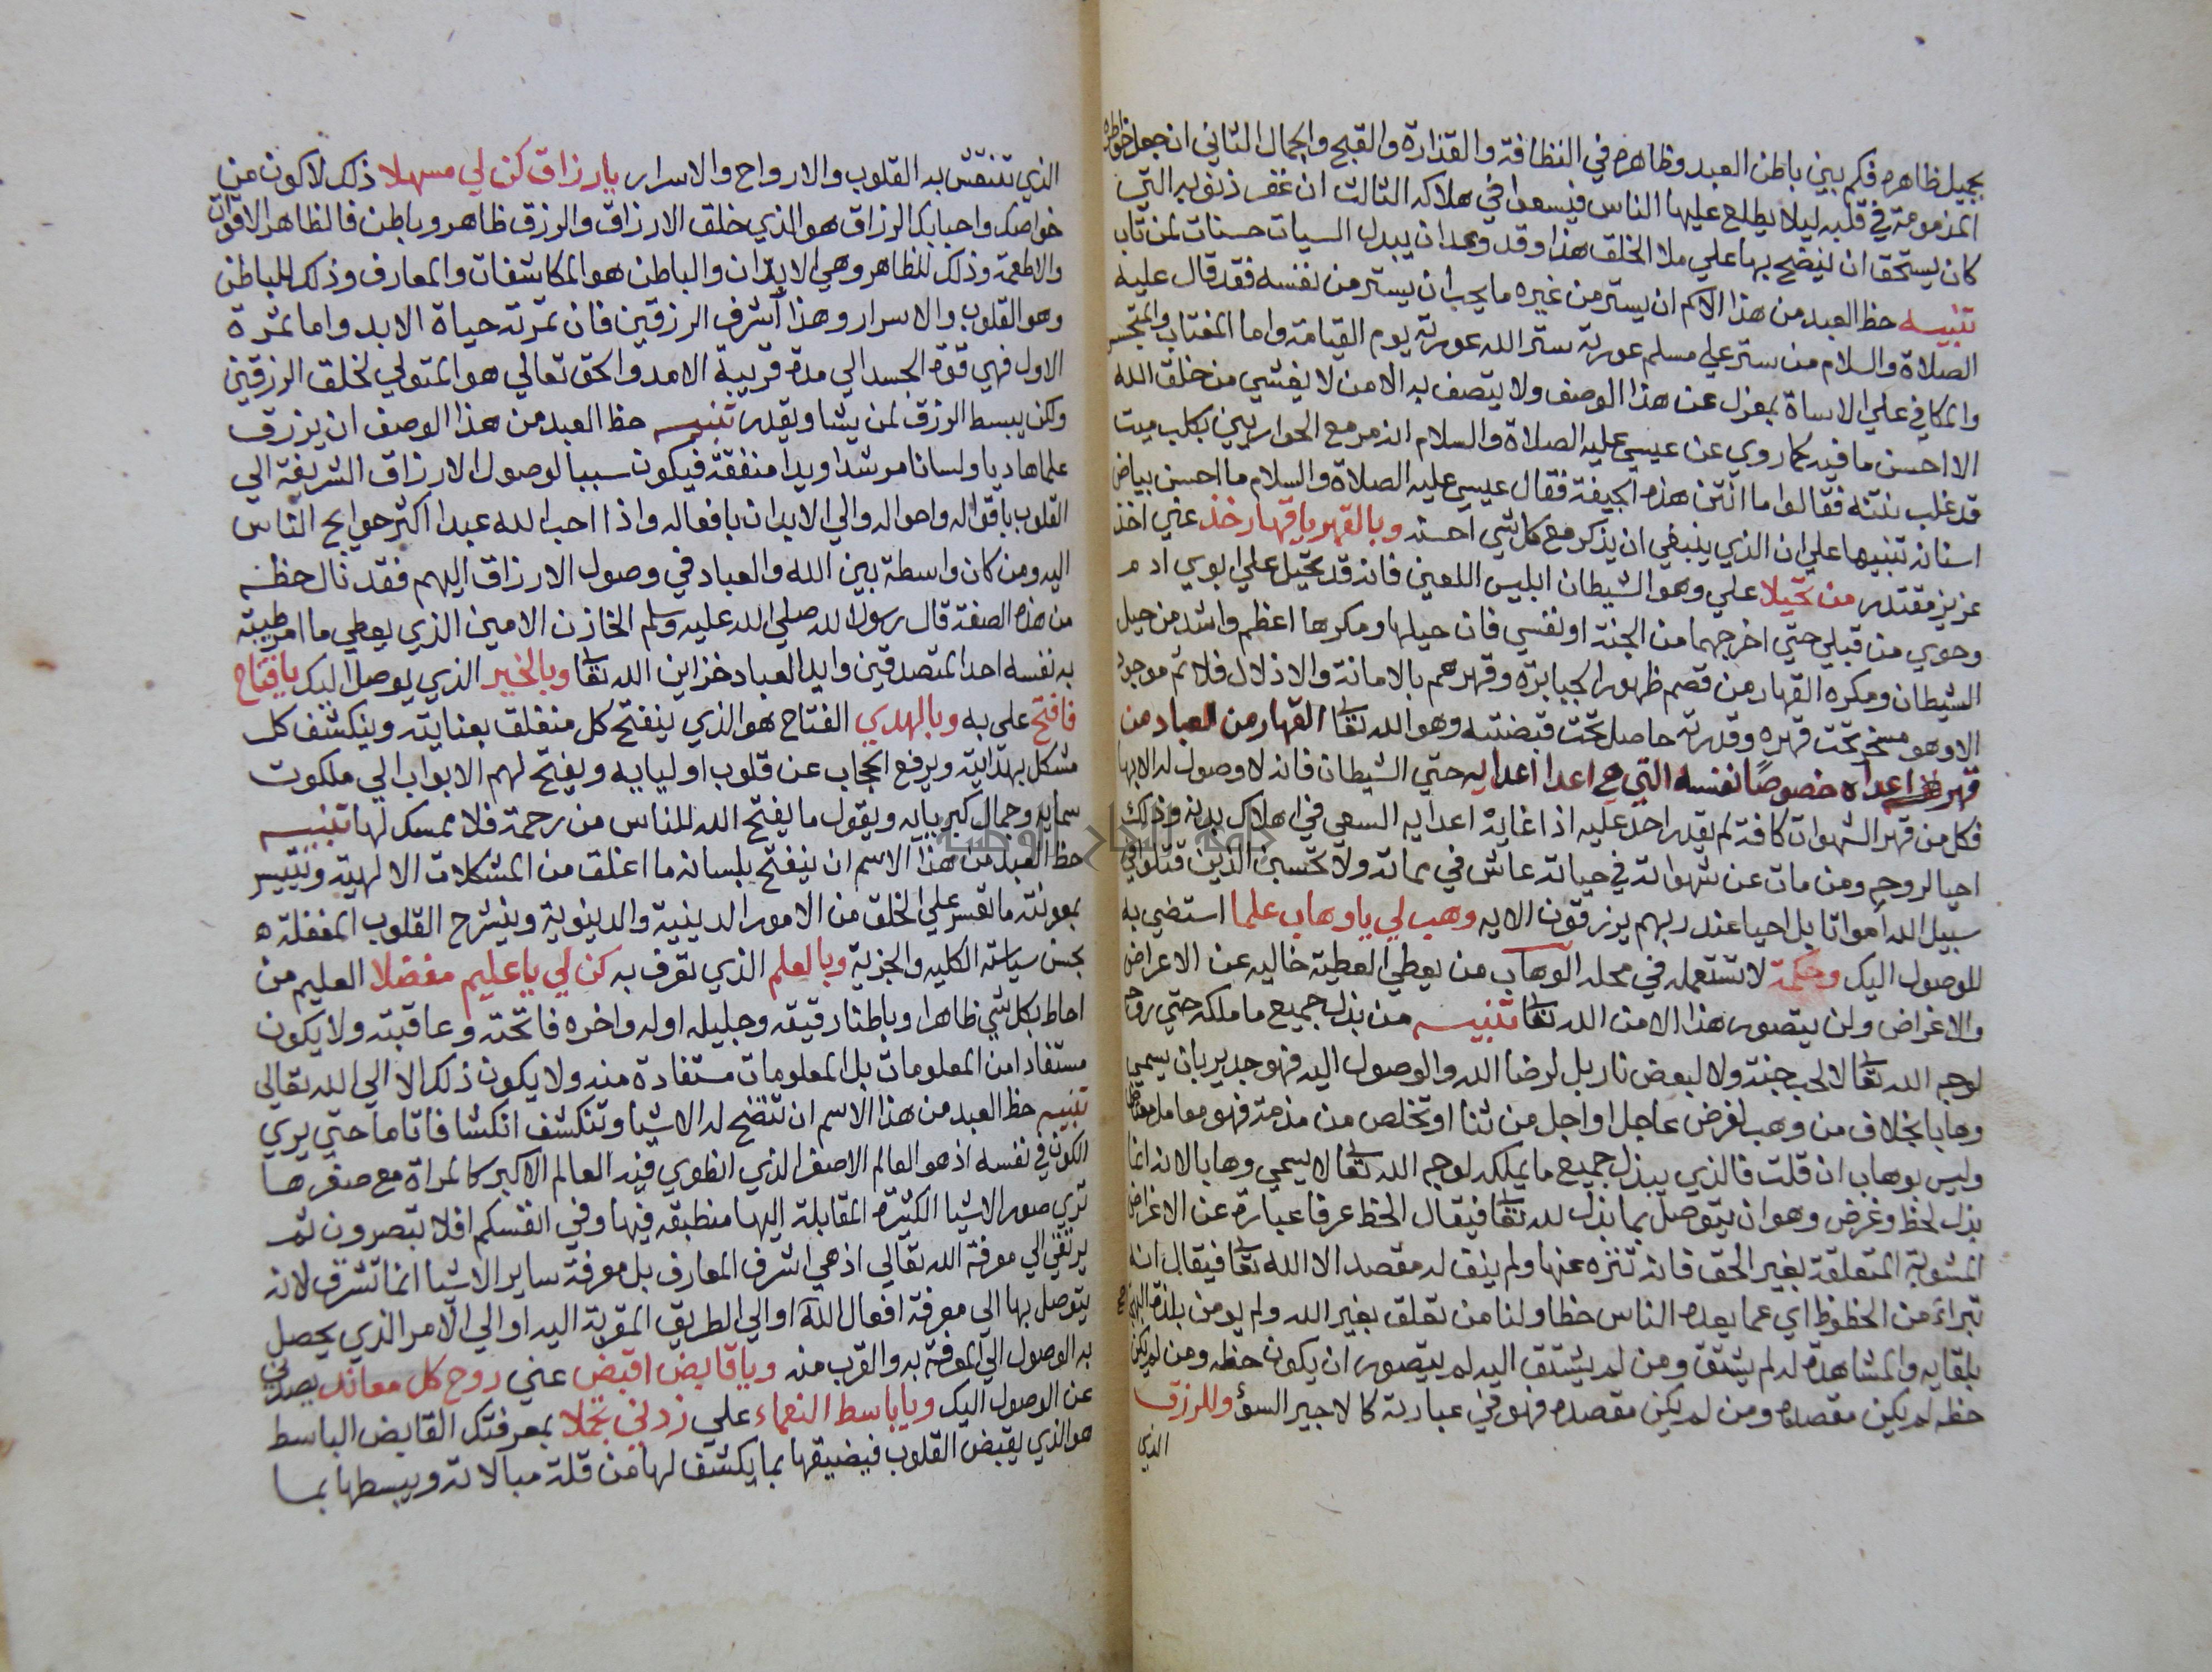 بجميل ظاهره فكم بين باطن العبد وظاهره في النظافة والقذارة والقبح والجمال الثاني ان جعل خواطره
المذمومة في قلبه ليلا يطلع عليها الناس فيسعوا في هلاكه الثالث ان غفر ذنوبه التي
كان يستحق ان يفتضح بها علي ملا الخلق هذا وقد وعد ان يبدل السيات حسنات لمن تاب
تنبيه حظ العبد من هذا الاسم ان يستر من غيره ما يجب ان يستر من نفسه فقد قال عليه
الصلاة والسلام من ستر علي مسلم عورته ستر الله عورته يوم القيامة واما المغتاب والمتجسس
والمكافي علي الاساة بمعزل عن هذا الوصف ولا يتصف به الا من لا يفشي من خلق الله
الا احسن ما فيه كما روي عن عيسي عليه الصلاة والسلام انه مر مع الحواريين بكلب ميت
قد غلب نتنه فقالوا ما انتن هذه الجيفة فقال عيسي عليه الصلاة والسلام ما احسن بياض
اسنانه تنبيها علي ان الذي ينبغي ان يذكر مع كل شي احسنه وبالقهر يا قهار خذ عني اخذ
عزيز مقتدر من تحيلا علي وهو الشيطان ابليس اللعين فانه قد تحيل علي ابوي ادم
وحوي من قبلي حتي اخرجهما من الجنة او نفسي فان حيلها ومكرها اعظم واشد من حيل
الشيطان ومكره القهار من قصم ظهور الجبابرة وقهرهم بالامانة والاذلال فلا ثم موجود
الا وهو مسخر تحت قهره وقدرته حاصل تحت قبضته وهو الله تعا القهار من العباد من
قهر اعداه خصوصا نفسه التي هي اعدا اعدايه حتي الشيطان فانه لا وصول له الا بها
فكل من قهر الشهوات كافة لم يقدر احد عليه اذا غاية اعدايه السعي في اهلاك بدنه وذلك
احيا لروحه ومن مات عن شهواته في حياته عاش في مماته ولا تحسبن الذين قتلوا في
سبيل الله امواتا بل احيا عند ربهم يرزقون الايه وهب لي يا وهاب علما استضي به
للوصول اليك وحكمة لاستعمله في محله الوهاب من يعطي العطية خاليه عن الاعراض
والاغراض ولن يتصور هذا الا من الله تعا تنبيه من بذل جميع ما ملكه حتي روحه
لوجه الله تعا لا لحب جنة ولا لبعض نار بل لرضا الله والوصول اليه فهو جدير بان يسمي
وهابا بخلاف من وهب لغرض عاجل او اجل من ثنا او تخلص من مذمة فهو معامل
وليس بوهاب ان قلت فالذي يبذل جميع ما يملكه لوجه الله تعا لا يسمي وهابا لانه انما
بذل لحظ وغرض وهو ان يتوصل بما بذل لله تعا فيقال الحظ عرفا عبارة عن الاغراض
المشوبة المتعلقة بغير الحق فان تنزه عنها ولم يبق له مقصد الا الله تعا فيقال انه
تبراء من الحظوظ اي عما يعده الناس حظا ولنا من تعلق بغير الله ولم يومن بلذة البهجة
بلقايه والمشاهدة له لم يشتق ومن لم يشتق اليه لم يتصور ان يكون حظه ومن لم يكن
حظه لم يكن مقصده ومن لم يكن مقصده فهو في عبادته كالاجير السؤ وللرزق
الذي
الذي تنتقش به القلوب والارواح والاسرار يا رزاق كن لي مسهلا ذلك لاكون من
خواصك واحبابك الرزاق هو الذي خلق الارزاق والرزق ظاهر وباطن فالظاهر الاقوات
والاطعمة وذلك للظاهر وهي الابدان والباطن هو المكاشفات والمعارف وذلك للباطن
وهو القلوب والاسرار وهذا اشرف الرزقين فان ثمرته حياة الابد واما ثمرة
الاول فهي قوة الجسد الي مدة قريبة الامد والحق تعالي هو المتولي لخلق الرزقين
ولكن يبسط الرزق لمن يشا ويقدر تنبيه حظ العبد من هذا الوصف ان يرزق
علما هاديا ولسانا مرشدا ويدا منفقة فيكون سببا لوصول الارزاق الشريفة الي
القلوب باقواله واحواله والي الابدان بافعاله واذا احب الله عبدا اكثر حوايج الناس
اليه ومن كان واسطة بين الله والعباد في وصول الارزاق اليهم فقد نال حظه
من هذه الصفة قال رسول الله صلي الله عليه وسلم الخازن الامين الذي يعطي ما امر طيبة
به نفسه احد المتصدقين وايد العباد خزاين الله تعا وبالخير الذي يوصل اليك يا فتاح
فافتح علي به وبالهدي الفتاح هو الذي ينفتح كل منغلق بعنايته وينكشف كل
مشكل بهدايته ويرفع الحجاب عن قلوب اوليايه ويفتح لهم الابواب الي ملكوت
سمايه وجمال كبريايه ويقول ما يفتح الله للناس من رحمة فلا ممسك لها تنبيه
حظ العبد من هذا الاسم ان ينفتح بلسانه ما اغلق من المشكلات الالهية ويتيسر
بمعونته ما تعسر علي الخلق من الامور الدينية والدنيوية وينشرح القلوب المغفلة
بحسن سياسته الكليه والجزية وبالعلم الذي تعرف به كن لي يا عليم مفضلا العليم من
احاط بكل شي ظاهرا وباطنا دقيقه وجليله اوله واخره فاتحته وعاقبته ولا يكون
مستفادا من المعلومات بل المعلومات مستفادة منه ولا يكون ذلك الا الي الله تعالي
تنبيه حظ العبد من هذا الاسم ان تتضح له الاشيا وتنكشف انكشافا تاما حتي يري
الكون في نفسه اذ هو العالم الاصغر الذي انطوي فيه العالم الاكبر كالمراة مع صغرها
تري صور الاشيا الكثيرة المقابلة اليها منطبقة فيها وفي انفسكم افلا تبصرون ثم
يرتقي الي معرفة الله تعالي اذ هي اشرف المعارف بل معرفة ساير الاشيا انما تشرف لانه
يتوصل بها الي معرفة افعال الله او الي الطريق المقربة اليه او الي الامر الذي يحصل
به الوصول الي المعرفة به والقرب منه ويا قابض اقبض عني روح كل معاند يصدني
عن الوصول اليك ويا باسط النعماء علي زدني تجملا بمعرفتك القابض الباسط
هو الذي يقبض القلوب فيضيقها بما يكشف لها من قلة مبالاته ويبسطها بما